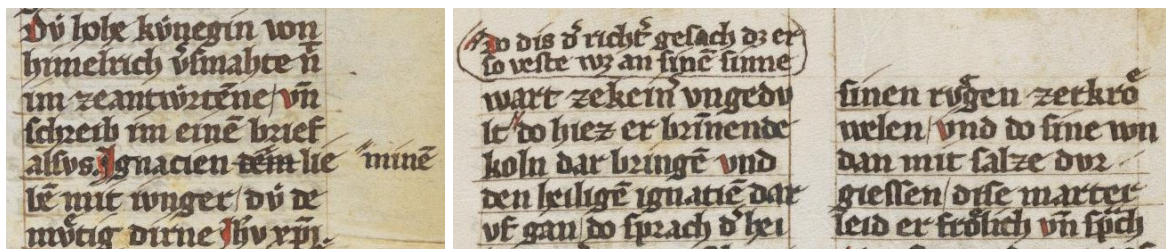 Dv́ hohe kv́negin von
himelrich v̓smahte nt̄
im zeantwúrtēne/ vn̄
schreib im einē brief
alsvs. Ignacien dem lie minē
bē mit ivnger/ dv́ de
mv̊tig dirne Jhv xp̄i
do dis d̓ richt̓ gesach dz er
so veste wz an sinē sinne
wart zekein̓ vngedv
lt do hiez er brin̄ende
koln dar bringē vnd
den heiligē ignatiē dar
vf gan/ do sprach d̓ hei
sinen rv̊gen zerkrō
welen/ vnd do sine wn
dan mit salze dvr
giessen/ dise marter
leid er frȯlich vn̄ sp̄ch